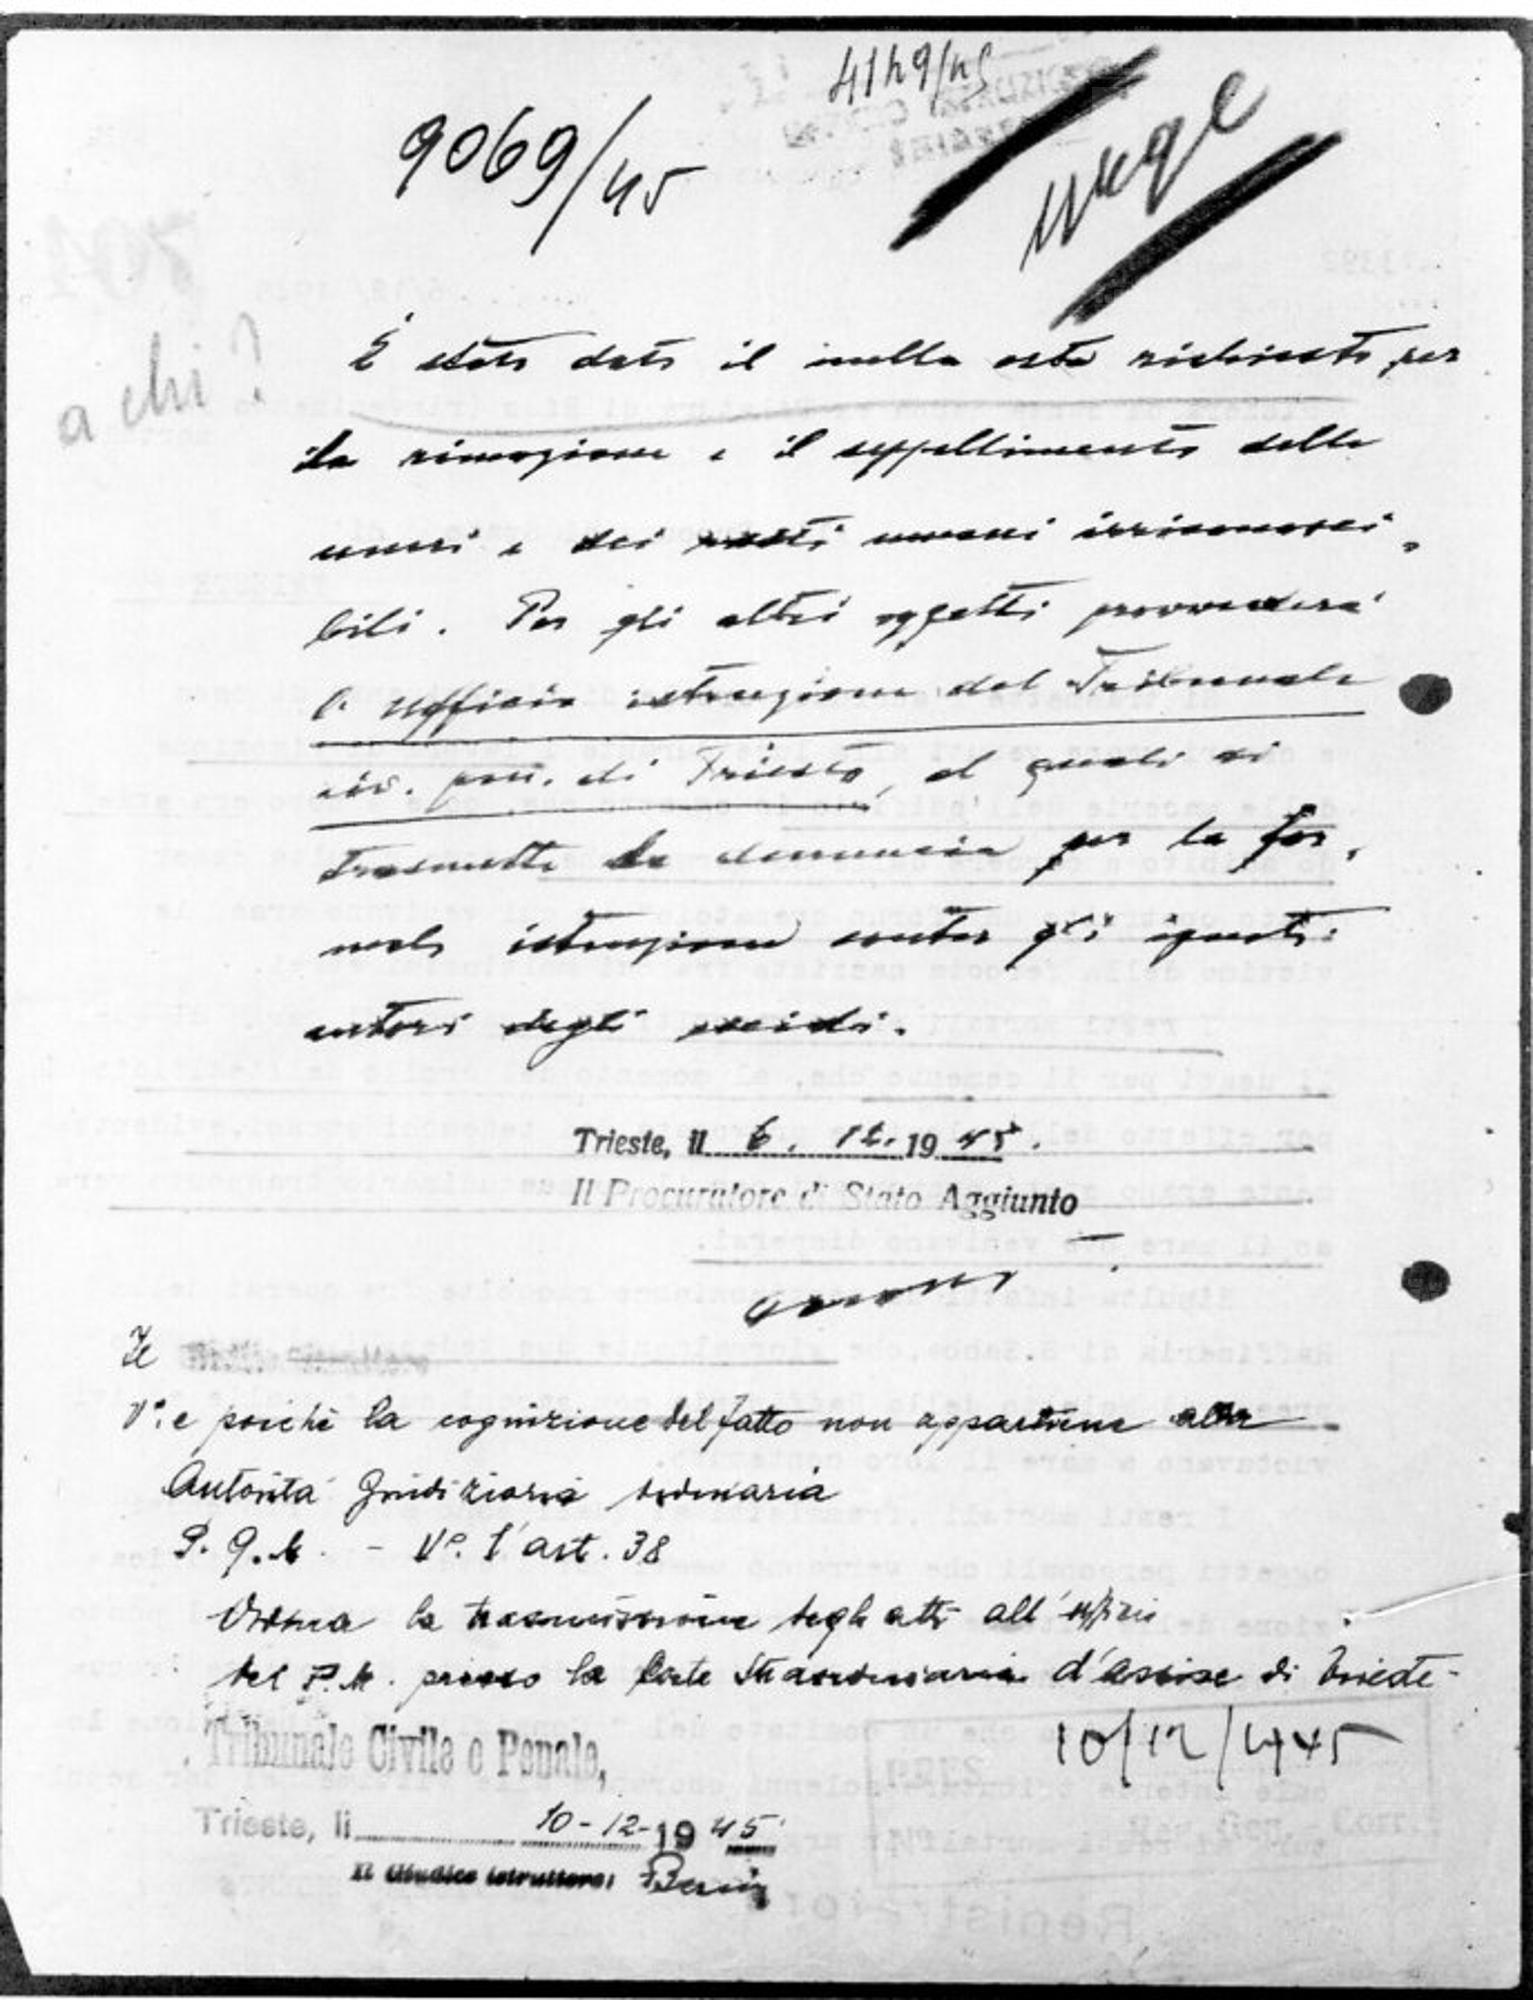 4149/45
9069/45
urge
a chi?
È stato dato il nulla osta richiesto per
la rimozione e il seppellimento delle
ceneri e dei resti umani irriconosci-
bili. Per gli altri oggetti provvederà
l'Ufficio istruzione del Tribunale
civ. pen. di Trieste, al quale si
trasmette la denuncia per la for-
male istruzione contro gli ignoti
autori degli eccidi.
Trieste, il 6. 12. 1945.
Il Procuratore di Stato Aggiunto
Il Giudice istruttore
V° e poichè la cognizione del fatto non appartiene alla
Autorità Giudiziaria ordinaria
P. Q. M. - V°. l'art. 38
Ordina la trasmissione degli atti all'ufficio
del P.M. presso la Corte Straordinaria d'Assise di Trieste-
10/12/1945
Tribunale Civile e Penale,
Trieste, li 10-12-1945
Il Giudice istruttore: